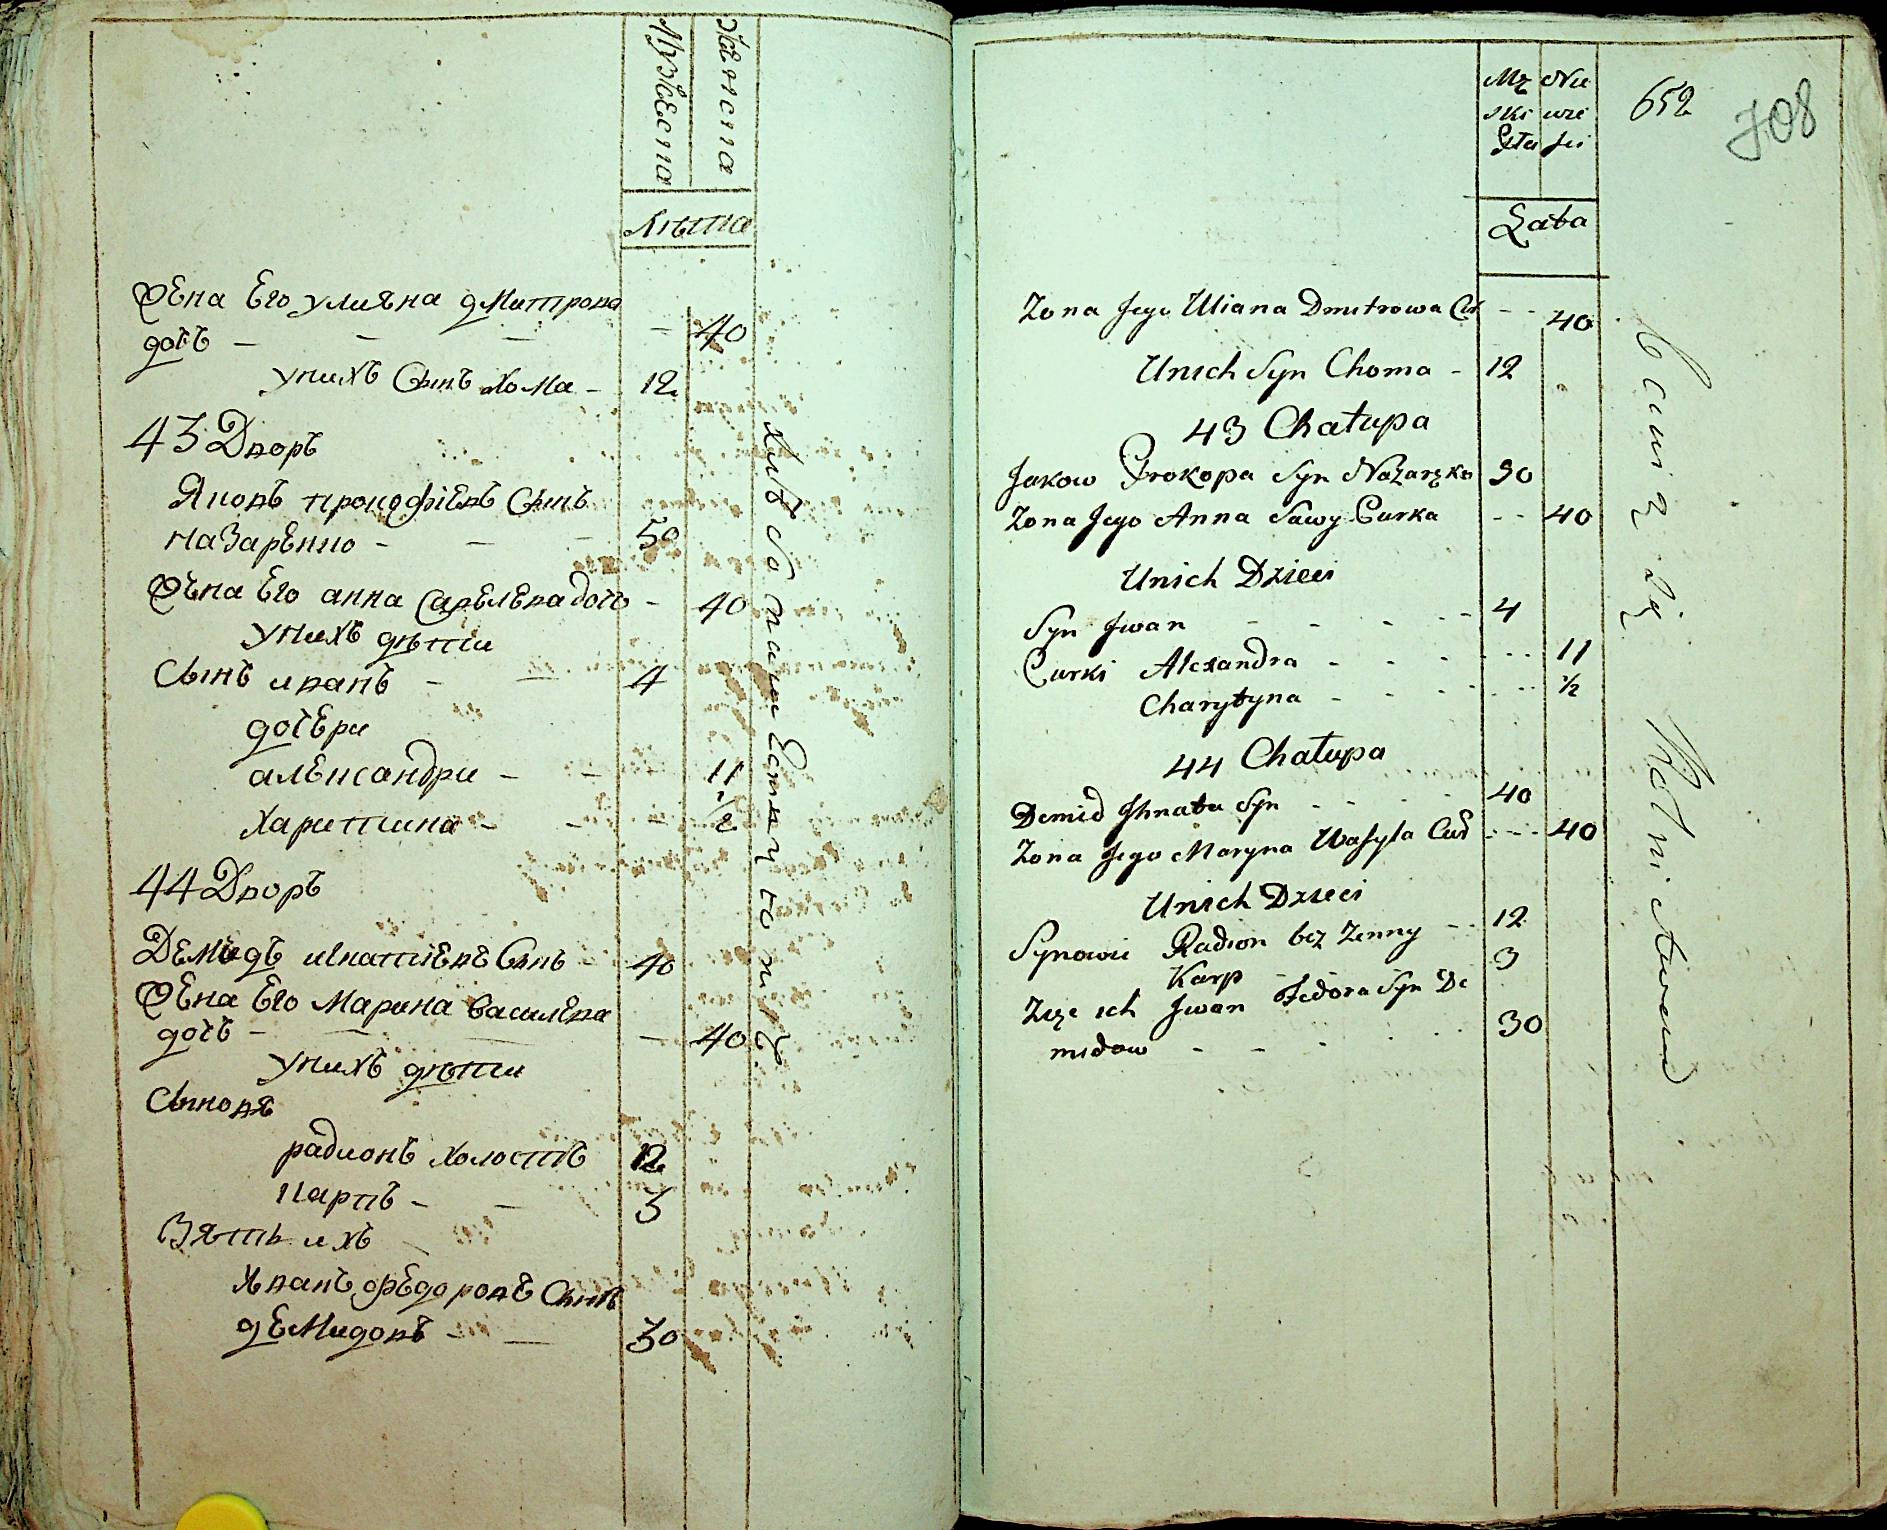 Мужеска
Женска
Лѣта
Жена Его улияна дмитрова
дочь - - - - 40
унихъ Сынъ хома - 12
43 Дворъ
Яковъ прокофіевъ Сынъ
назаренко - - - 50
Жена Его анна Савельева дочь - 40
унихъ дѣти
Сынъ иванъ - - 4
дочери
александра - - 11
Харитина - - - 1/2
44 Дворъ
Демидъ игнатіевъ Сынъ - 40
Жена Его Марина василева
дочь - - - 40
унихъ дѣти
Сыновя
радионъ холостъ 12
карпъ - - 3
Зять ихъ
Иванъ федоровъ Сынъ
демидовъ - - 30
Mę Nie
ski wie
Płu ści
Lata
652
708
Zona Jego Uliana Dmitrowa Cur - - 40
Unich Syn Choma - 12
43 Chałupa
Jakow Prokopa Syn Nazaręko 50
Zona Jego Anna Sawy Curka - - 40
Unich Dzieci
Syn Jwan - - - - - 4
Curki Alexandra - - - - - - 11
Charytyna - - - - - - 1/2
44 Chałupa
Demid Jhnata Syn - - - - 40
Zona Jego Maryna Wasyla Cur - - - 40
Unich Dzieci
Synowie Radion bez Zenny - - 12
Karp 3
Zięc ich Jwan Fedora Syn De
midow - - - - - 30